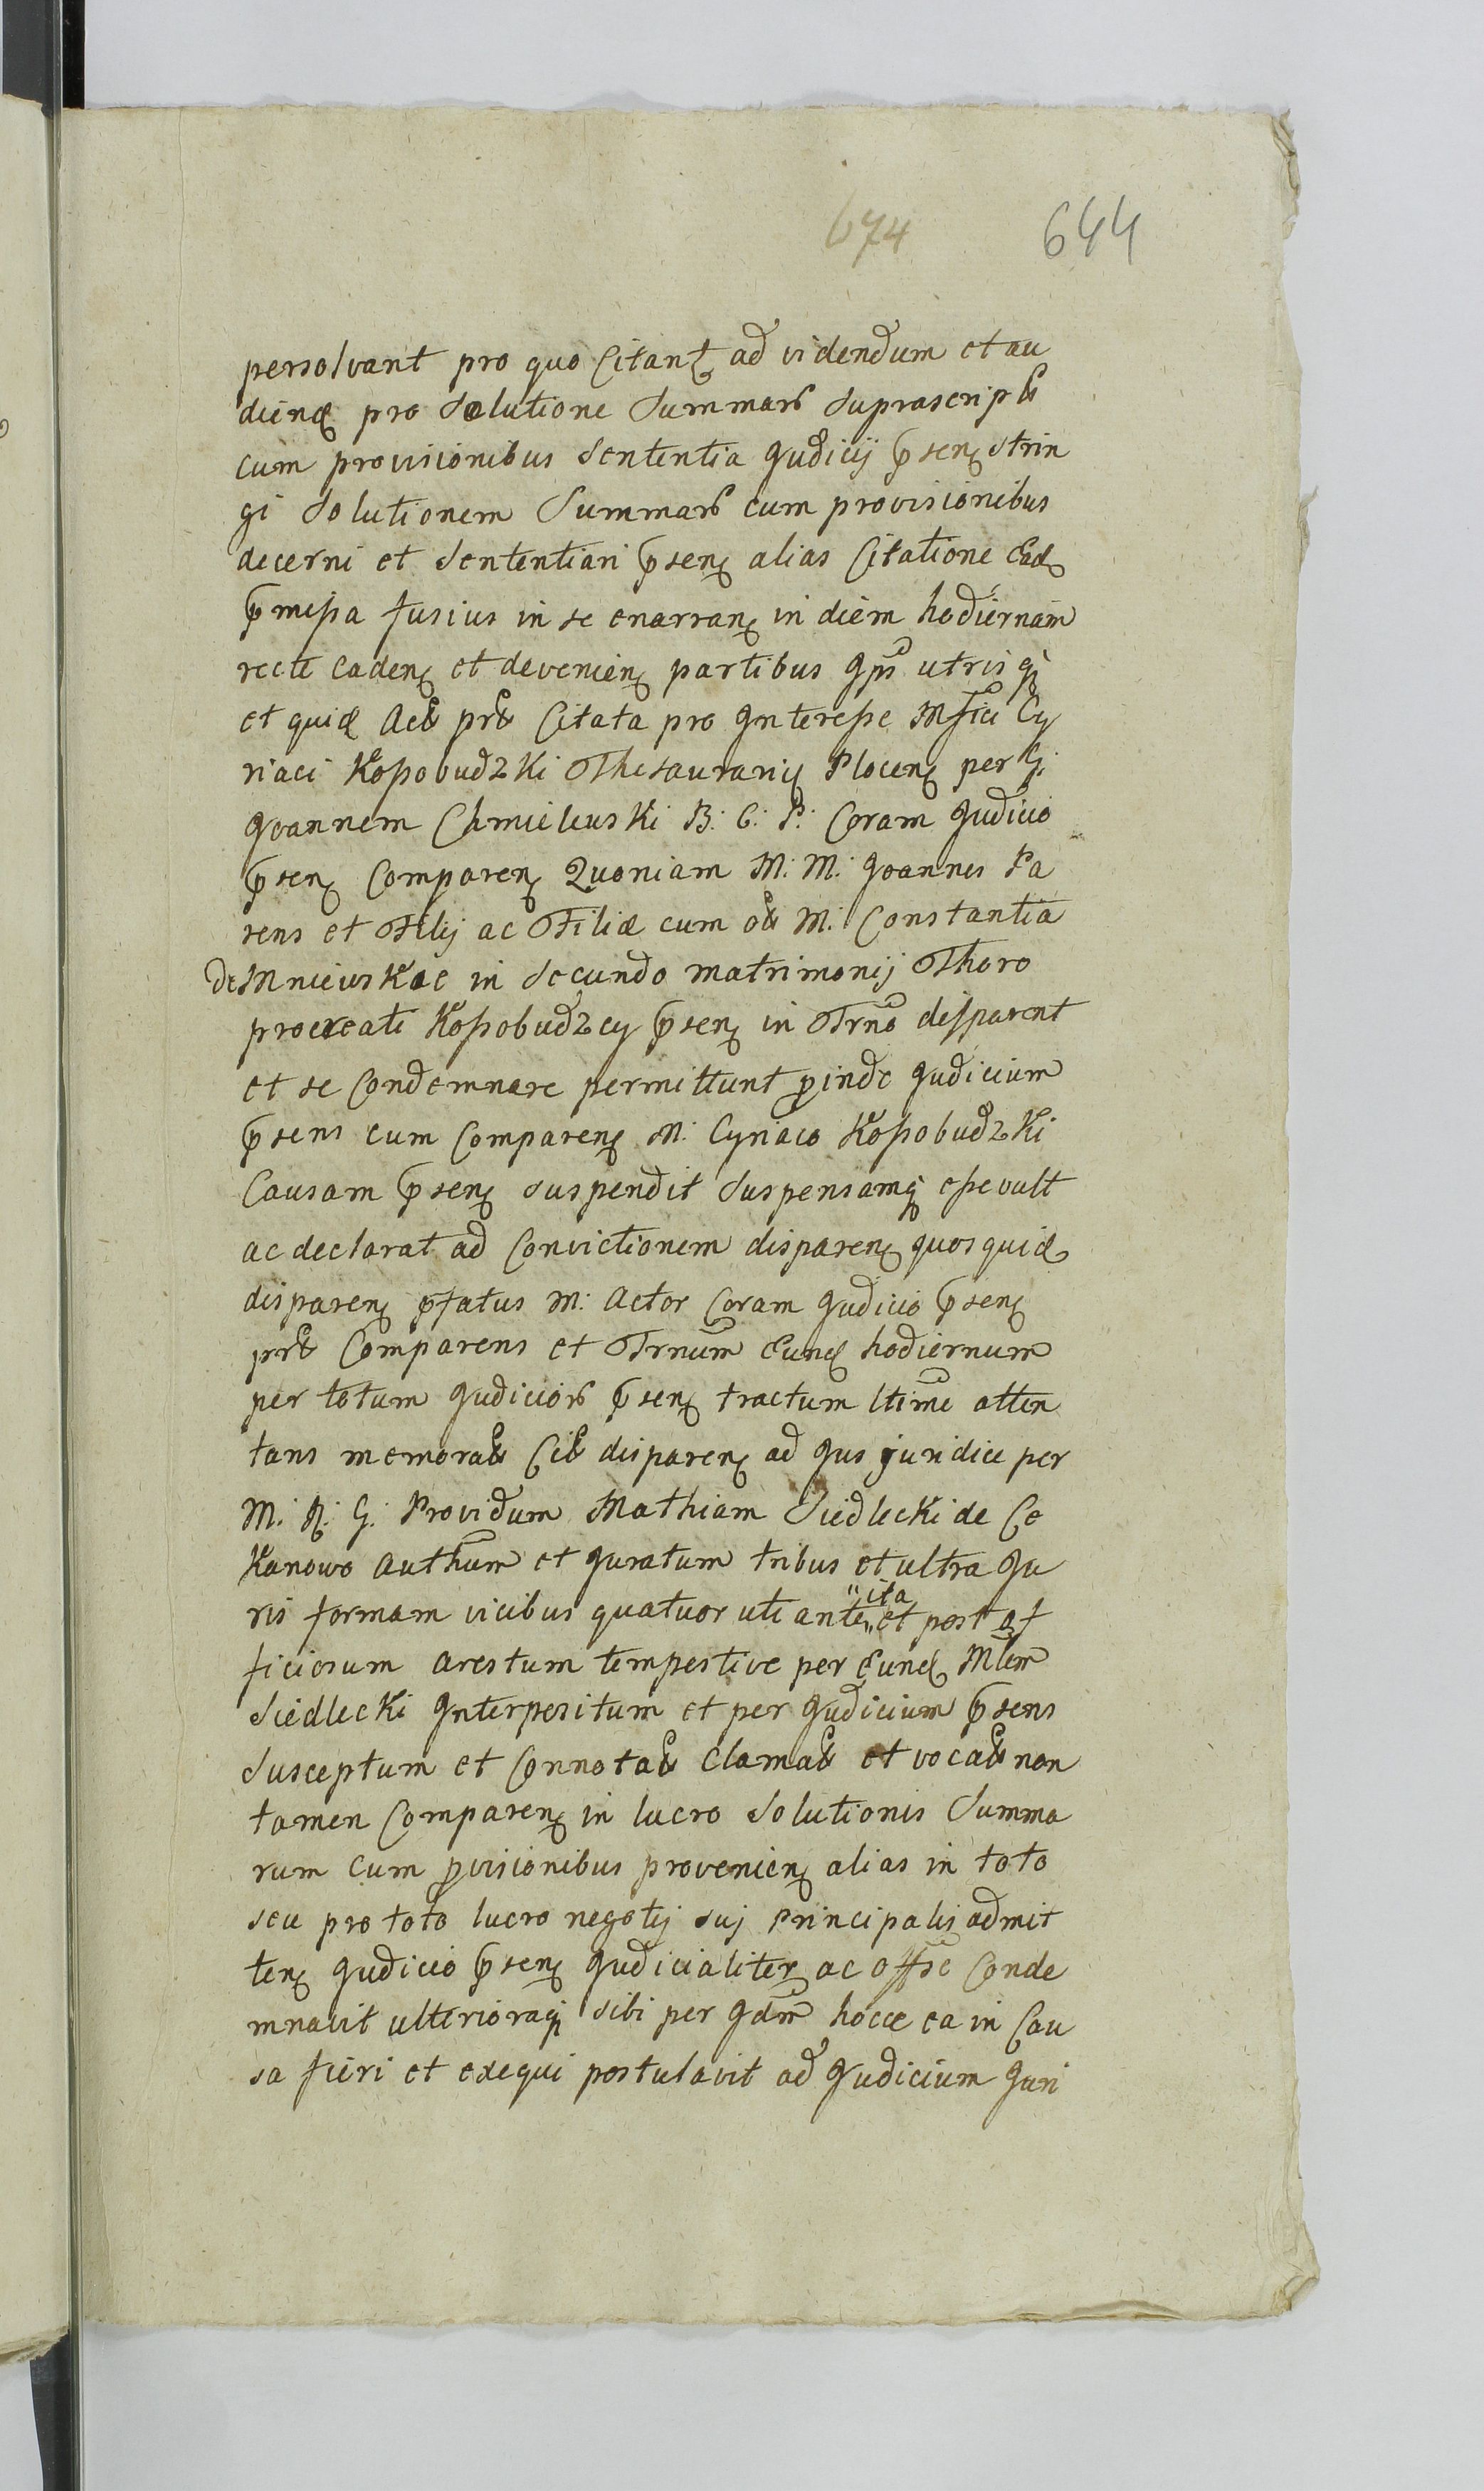 674 644
persolvant pro quo Citant ad videndum et au
diend pro Solutione Summar Suprascript
cum provisionibus Sententia Judicij psen strin
gi Solutionem Summar cum provisionibus
decerni et Sententiari psen alias Citatione Ead
pmissa fusius in se enarran in diem hodiernam
recte caden et devenien partibus Ips utrisq
et quid Act prt Citata pro Interesse Mfici Cy
riaci Kossobudzki Thesaurarij Plocen per G:
Joannem Chmielewski B: C: P: Coram Judicio
psen Comparen Quoniam M: M: Joannes Pa
rens et Filij ac Filiæ cum ot M: Constantia
de Mniewskae in Secundo matrimonij Thoro
procreati Kossobudzcy psen in Trno disparent
et se Condemnare permittunt proinde Judicium
psens cum Comparen M: Cyriaco Kossobudzki
Causam psen suspendit Suspensamq esse vult
ac declarat ad Convictionem disparen quos quid
disparen pfatus M: Actor Coram Judicio psen
prt Comparens et Trnum Eund hodiernum
per totum Judicior psen tractum ltime atten
tans memorat Cit disparen ad Jus juridice per
M: R: G: Providum Mathiam Siedlecki de Ce
Kanowo Authum et Juratum tribus et ultra Ju
ris formam vicibus quatuor uti ante "ita" et post of
ficiosum arestum tempestive per Eund Mlem
Siedlecki Interpositum et per Judicium psens
Susceptum et Connotat Clamat et vocat non
tamen Comparen in lucro Solutionis Summa
rum cum provisionibus provenien alias in toto
seu pro toto lucro negotij suj principalis admit
ten Judicio psen Judicialiter ac offse Conde
mnavit ulterioraq Sibi per Jdm hocce ea in Cau
sa fieri et exequi postulavit ad Judicium Juri